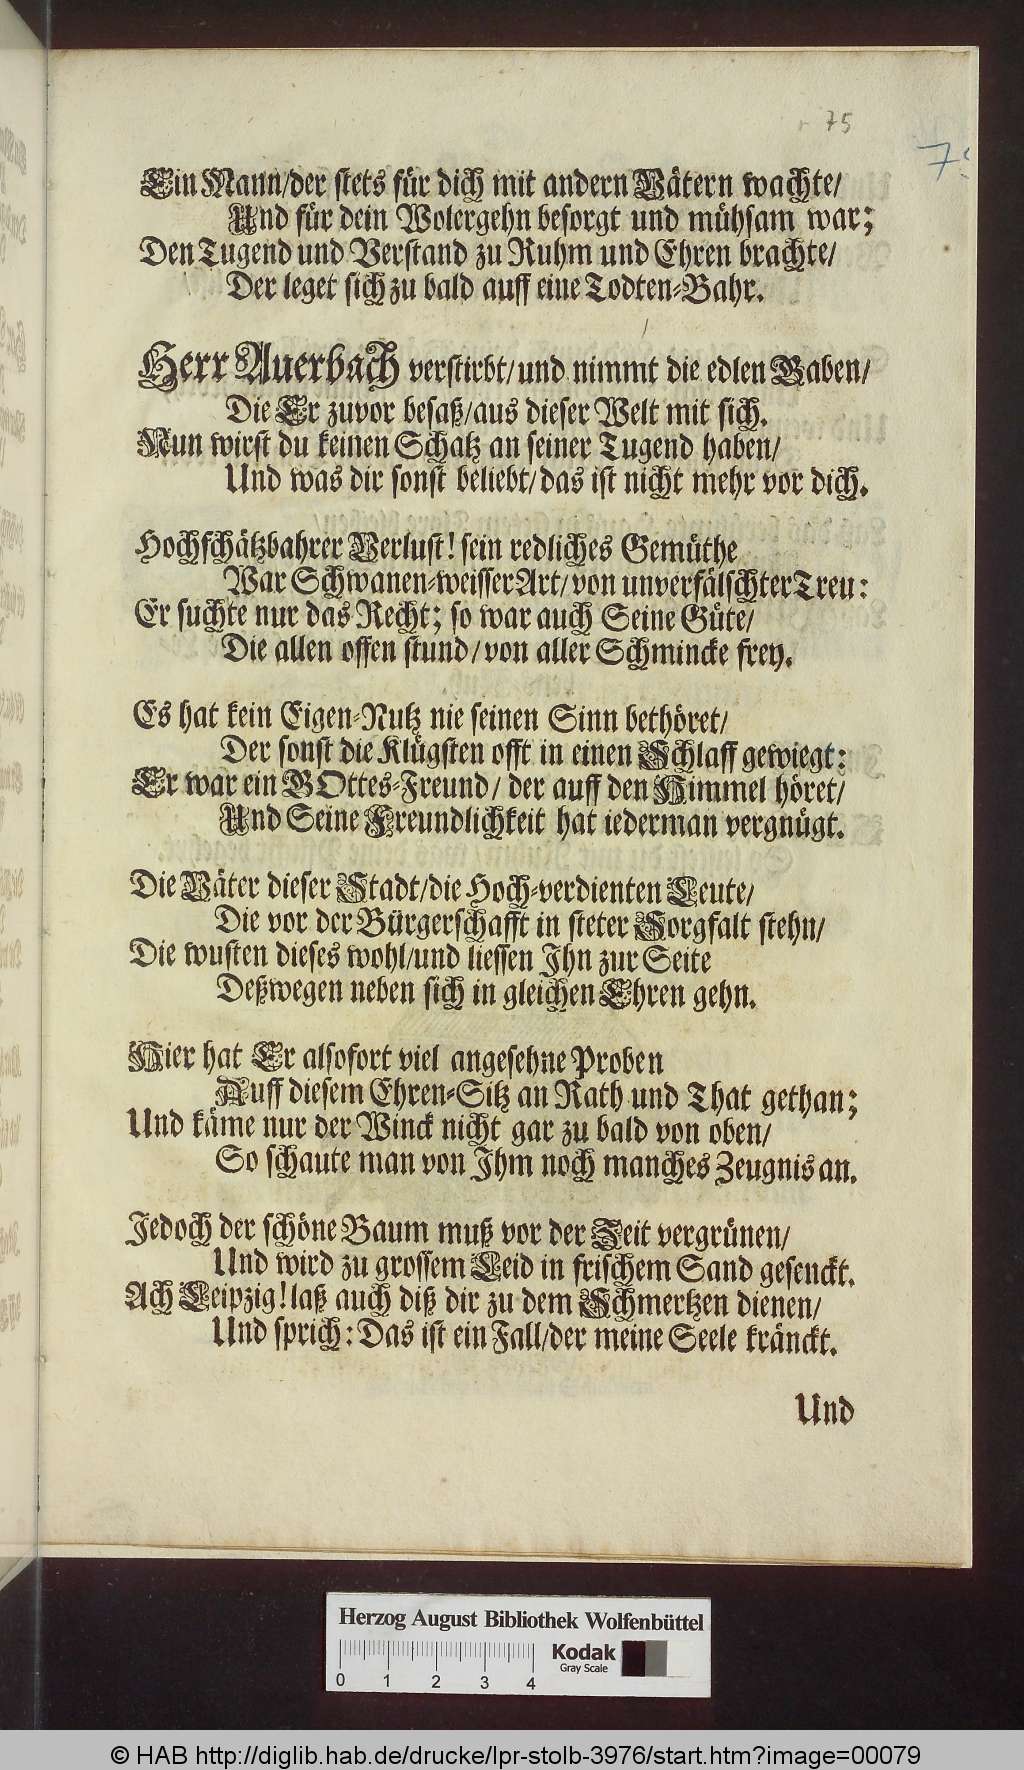 75
Ein Mann/der stets für dich mit andern Vätern wachte/
Und für dein Wolergehn besorgt und mühsam war;
Den Tugend und Verstand zu Ruhm und Ehren brachte/
Der leget sich zu bald auff eine Todten-Bahr.
Herr Auerbach verstirbt/und nimmt die edlen Gaben/
Die Er zuvor besaß/aus dieser Welt mit sich.
Nun wirst du keinen Schatz an seiner Tugend haben/
Und was dir sonst beliebt/das ist nicht mehr vor dich.
Hochschätzbahrer Verlust! sein redliches Gemüthe
War Schwanen-weisser Art/von unverfälschter Treu:
Er suchte nur das Recht; so war auch Seine Güte/
Die allen offen stund/von aller Schmincke frey.
Es hat kein Eigen-Nutz nie seinen Sinn bethöret/
Der sonst die Klügsten offt in einen Schlaff gewiegt:
Er war ein GOttes-Freund/der auff den Himmel höret/
Und Seine Freundlichkeit hat iederman vergnügt.
Die Väter dieser Stadt/die Hoch-verdienten Leute/
Die vor der Bürgerschafft in steter Sorgfalt stehn/
Die wusten dieses wohl/und liessen Ihn zur Seite
Deßwegen neben sich in gleichen Ehren gehn.
Hier hat Er alsofort viel angesehne Proben
Auff diesem Ehren-Sitz an Rath und That gethan;
Und käme nur der Winck nicht gar zu bald von oben/
So schaute man von Ihm noch manches Zeugnis an.
Jedoch der schöne Baum muß vor der Zeit vergrünen/
Und wird zu grossem Leid in frischem Sand gesenckt.
Ach Leipzig!laß auch diß dir zu dem Schmertzen dienen/
Und sprich: Das ist ein Fall/der meine Seele kränckt.
Und
Herzog August Bibliothek Wolfenbüttel
Kodak
Gray Scale
0 1 2 3 4
© HAB http://diglib.hab.de/drucke/lpr-stolb-3976/start.htm?image=00079